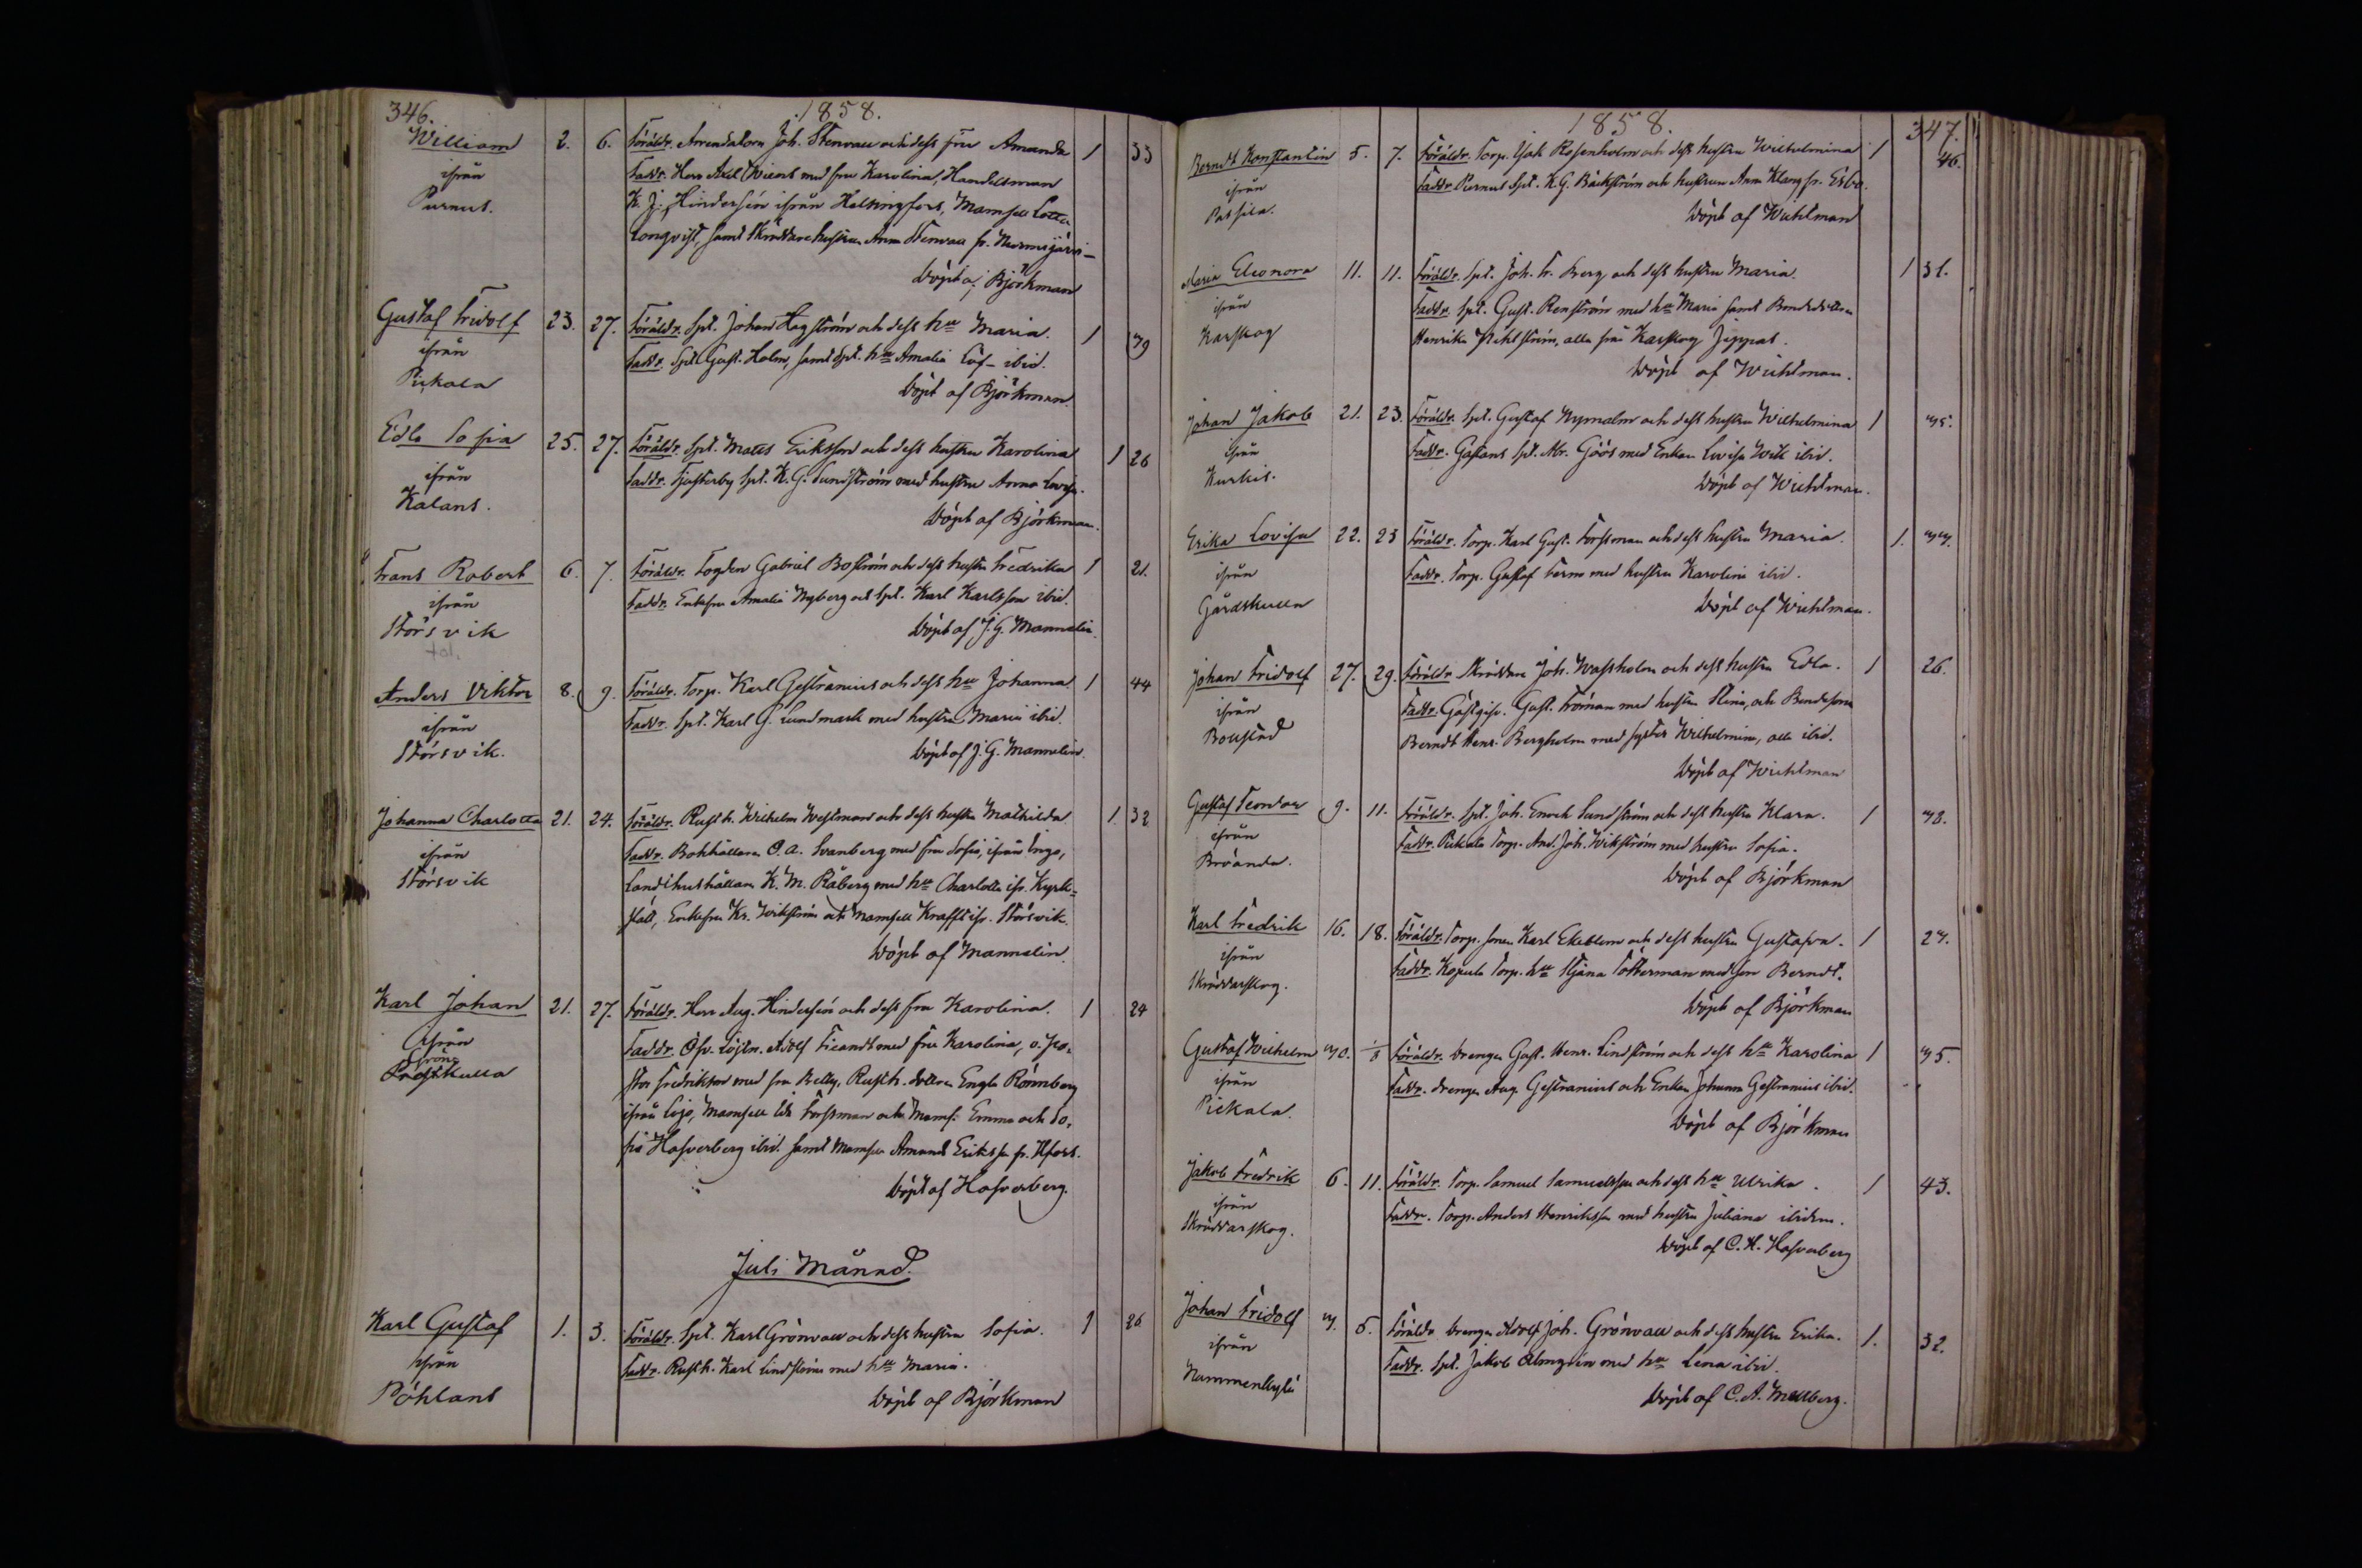 346.
1858.
William 2. 6. Föräldr. Arrendatorn Joh. Stenvall och dess fru Amanda 1 33
ifrån Faddr. Herr Axel med fru Karolina, Handelsman
Purnus. K. J. Hindersén ifrån Helsingfors, Mamsell Lotta
Lönqvist, samt Skräddarehustrun Anna Stenvall fr. Nurmijärvi
Döpt af Björkman
Gustaf Fridolf 23. 27. Föräldr. Spt. Johan Hagström och dess hu Maria. 1 39
ifrån Faddr. Spt. Gust. Holm, samt Spt. hu Amalia Löf ibid.
Pickala Döpt af Björkman.
Edla Sofia 25. 27. Föräldr. Spt. Matts Eriksson och dess hustru Karolina 1 26
ifrån Faddr. Sjösterby Spt. K. G. Sundström med hustru Anna Lovisa.
Kalans. Döpt af Björkman.
Frans Robert 6. 7. Föräldr. Fogden Gabriel Boström och dess hustru Fredrika 1 21.
ifrån Faddr. Enkefru Amalia Nyberg och Spt. Karl Karlsson ibid.
Störsvik Döpt af J. G. Mannelin.
Anders Viktor 8. 9. Föräldr. Torp. Karl Gestranius och dess hu Johanna 1 44
ifrån Faddr. Spt. Karl G. Lundmark med hustru Maria ibid.
Störsvik. Döpt af J. G. Mannelin.
Johanna Charlotta 21. 24. Föräldr. Rusth. Wilhelm Westman och dess hustru Mathilda 1. 32
ifrån Faddr. Bokhållaren O. A. Svanberg med fru Sofia, ifrån Ingo,
Störsvik Landthushållaren K. M. Råberg med hu Charlotta ifr. Kyrk-
slätt, Enkefru Kr. Wikström och Mamsell Krafft ifr. Störsvik.
Döpt af Mannelin.
Karl Johan 21. 27. Föräldr. Herr Aug. Hindersén och dess fru Karolina. 1 24
ifrån Faddr. Öfv. Löjtn. Adolf Ficandt med fru Karolina,
Prästkulla Fredrikson med fru Betty, Rusth. dottren Engla Rönnberg
ifrån Lojo, Mamsell Ida Forssman och Mams. Emma och So-
fia Hasverberg ibid. samt Mamsell Amanda Eriksson fr. Hfors.
Döpt af Hasverberg.
Juli Månad.
Karl Gustaf 1. 3. Föräldr. Spt. Karl Grönvall och dess hustru Sofia. 1 26
ifrån Faddr. Rusth. Karl Lindström med hu Maria.
Påhlans Döpt af Björkman
1858.
347.
Berndt Konstantin 5. 7. Föräldr. Torp. Isak Rosenholm och dess hustru Wilhelmina 1 46.
ifrån Faddr. Purnus Spt. K. G. Bäckström och hustrun Anna Klang fr. Esbo.
Passila. Döpt af Wichtman
Maria Eleonora 11. 11. Föräldr. Spt. Joh. Fr. Berg och dess hustru Maria. 1 31.
ifrån Faddr. Spt. Gust. Renström med hu Maria samt Bondedottren
Karskog Henrika, alla från Karskog Jeppas.
Döpt af Wichtman.
Johan Jakob 21. 23. Föräldr. Spt. Gustaf Nymalm och dess hustru Wilhelmina 1 35.
ifrån Faddr. Spt. Abr. Göös med Enkan Lovisa Wik ibid.
Kurkis. Döpt af Wichtman.
Erika Lovisa 22. 23 Föräldr. Torp. Karl Gust. Forssman och dess hustru Maria. 1. 33.
ifrån Faddr. Torp. Gustaf med hustru Karolina ibid.
Gårdskulla Döpt af Wichtman.
Johan Fridolf 27. 29. Föräldr. Skräddare Joh. Wassholm och dess hustru Edla. 1 26.
ifrån Faddr. Gästgifv. Gust. Fröman med hustru Stina, och Bondesonen
Boustad Berndt Henr. Bergholm med syster Wilhelmina, alla ibid.
Döpt af Wichtman
Gustaf Teodor 9. 11. Föräldr. Spt. Joh. Enoch Sundström och dess hustru Klara. 1 38.
ifrån Faddr. Pickala Torp. And. Joh. Wikström med hustru Sofia.
Bröanda. Döpt af Björkman
Karl Fredrik 16. 18. Föräldr. Torp. sonen Karl Ekeblom och dess hustru Gustafva. 1 27.
ifrån Faddr. Kopula Torp. hu Stjana Totterman med son Berndt.
Skräddarskog. Döpt af Björkman
Gustaf Wilhelm 30. 1/8 Föräldr. Drengen Gust. Henr. Lindström och dess hu Karolina 1 35.
ifrån Faddr. drengen Aug. Gestranius och Enkan Johanna Gestranius ibid.
Pickala. Döpt af Björkman
Jakob Fredrik 6. 11. Föräldr. Torp. Samuel Samuelsson och dess hu Ulrika. 1 43.
ifrån Faddr. Torp. Anders Henriksson med hustru Juliana ibidem.
Skräddarskog. Döpt af C. H. Hasverberg
Johan Fridolf 3. 5. Föräldr. Drengen Adolf Joh. Grönvall och dess hustru Erika. 1. 32.
ifrån Faddr. Spt. Jakob Almgrén med hu Lena ibid.
Nummenkylä Döpt af C. A. Mellberg.